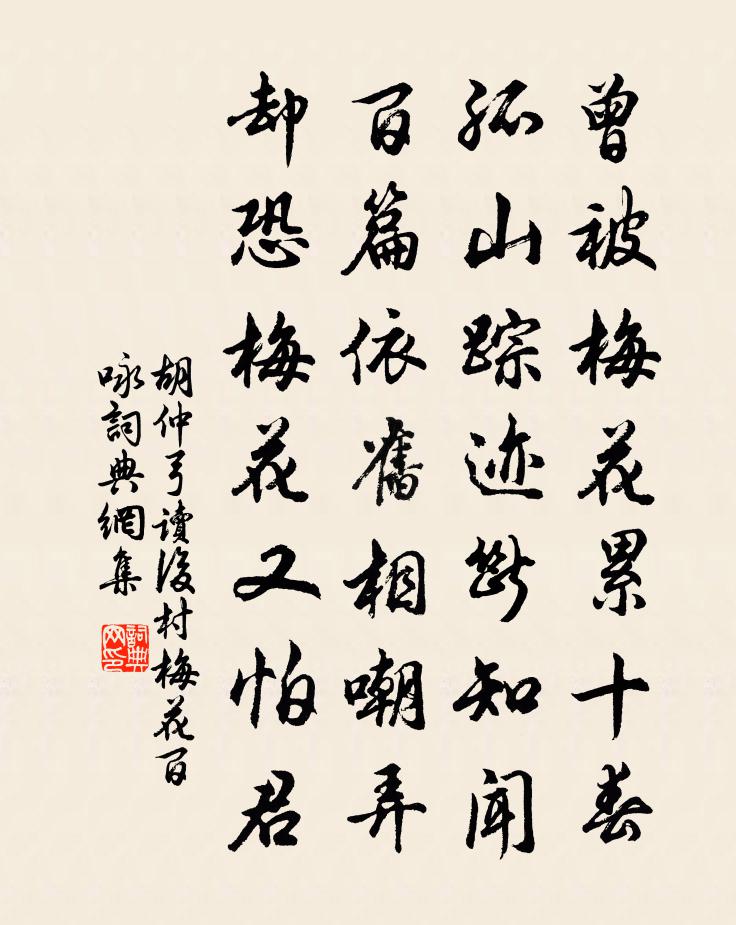 曾被梅花累十春
孤山踪迹斷知闻
百篇依舊相嘲弄
却恐梅花又怕君
胡仲弓讀後村梅花百
咏詞典網集
詞典网印